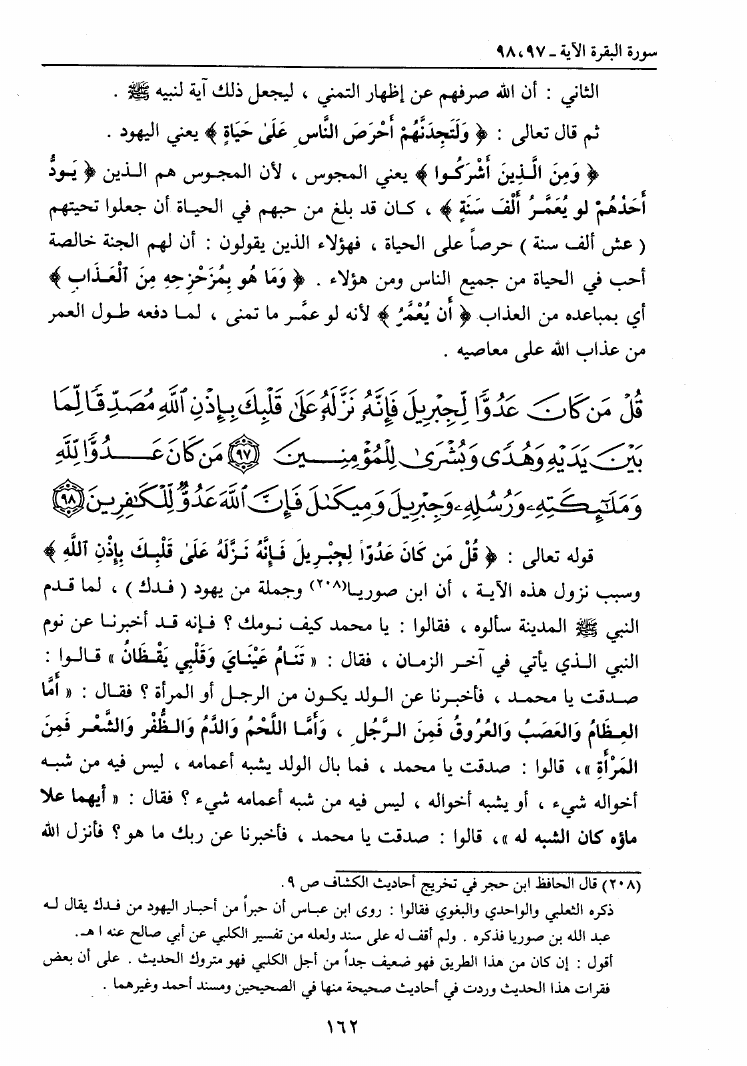 سورة البقرة الآية ـ ٩٧، ٩٨
الثاني : أن الله صرفهم عن إظهار التمني ، ليجعل ذلك آية لنبيه ﷺ .
ثم قال تعالى : ﴿ وَلَتَجِدَنَّهُمْ أَحْرَصَ النَّاسِ عَلَىٰ حَيَاةٍ ﴾ يعني اليهود .
﴿ وَمِنَ الَّذِينَ أَشْرَكُوا ﴾ يعني المجوس ، لأن المجوس هم الذين ﴿ يَودُّ
أَحَدُهُمْ لو يُعَمَّرُ أَلْفَ سَنَةٍ ﴾ ، كان قد بلغ من حبهم في الحياة أن جعلوا تحيتهم
( عش ألف سنة ) حرصاً على الحياة ، فهؤلاء الذين يقولون : أن لهم الجنة خالصة
أحب في الحياة من جميع الناس ومن هؤلاء . ﴿ وَمَا هُو بِمُزَحْزِحِهِ مِنَ الْعَذَابِ ﴾
أي بمباعده من العذاب ﴿ أَن يُعَمَّرَ ﴾ لأنه لو عمَّر ما تمنى ، لما دفعه طول العمر
من عذاب الله على معاصيه .
قُلْ مَن كَانَ عَدُوًّا لِّجِبْرِيلَ فَإِنَّهُ نَزَّلَهُ عَلَىٰ قَلْبِكَ بِإِذْنِ ٱللَّهِ مُصَدِّقًا لِّمَا
بَيْنَ يَدَيْهِ وَهُدًى وَبُشْرَىٰ لِلْمُؤْمِنِينَ ﴿٩٧﴾ مَن كَانَ عَدُوًّا لِّلَّهِ
وَمَلَٰٓئِكَتِهِۦ وَرُسُلِهِۦ وَجِبْرِيلَ وَمِيكَىٰلَ فَإِنَّ ٱللَّهَ عَدُوٌّ لِّلْكَٰفِرِينَ ﴿٩٨﴾
قوله تعالى : ﴿ قُلْ مَن كَانَ عَدُوّاً لِجِبْرِيلَ فَإِنَّهُ نَزَّلَهُ عَلَىٰ قَلْبِكَ بِإِذْنِ اللَّهِ ﴾
وسبب نزول هذه الآية ، أن ابن صوريا(٢٠٨) وجملة من يهود ( فدك ) ، لما قدم
النبي ﷺ المدينة سألوه ، فقالوا : يا محمد كيف نومك ؟ فإنه قد أخبرنا عن نوم
النبي الذي يأتي في آخر الزمان ، فقال : « تَنَامُ عَيْنَايَ وَقَلْبِي يَقْظَانُ » قالوا :
صدقت يا محمد ، فأخبرنا عن الولد يكون من الرجل أو المرأة ؟ فقال : « أَمَّا
العِظَامُ وَالعَصَبُ وَالعُرُوقُ فَمِنَ الرَّجُلِ ، وَأَمَّا اللَّحْمُ وَالدَّمُ وَالظُّفْر وَالشَّعْر فَمِنَ
المَرْأَةِ »، قالوا : صدقت يا محمد ، فما بال الولد يشبه أعمامه ، ليس فيه من شبه
أخواله شيء ، أو يشبه أخواله ، ليس فيه من شبه أعمامه شيء ؟ فقال : « أيهما علا
ماؤه كان الشبه له »، قالوا : صدقت يا محمد ، فأخبرنا عن ربك ما هو ؟ فأنزل الله
(٢٠٨) قال الحافظ ابن حجر في تخريج أحاديث الكشاف ص ٩ .
ذكره الثعلبي والواحدي والبغوي فقالوا : روى ابن عباس أن حبراً من أحبار اليهود من فدك يقال له
عبد الله بن صوريا فذكره . ولم أقف له على سند ولعله من تفسير الكلبي عن أبي صالح عنه ا هـ.
أقول : إن كان من هذا الطريق فهو ضعيف جداً من أجل الكلبي فهو متروك الحديث . على أن بعض
فقرات هذا الحديث وردت في أحاديث صحيحة منها في الصحيحين ومسند أحمد وغيرهما .
١٦٢